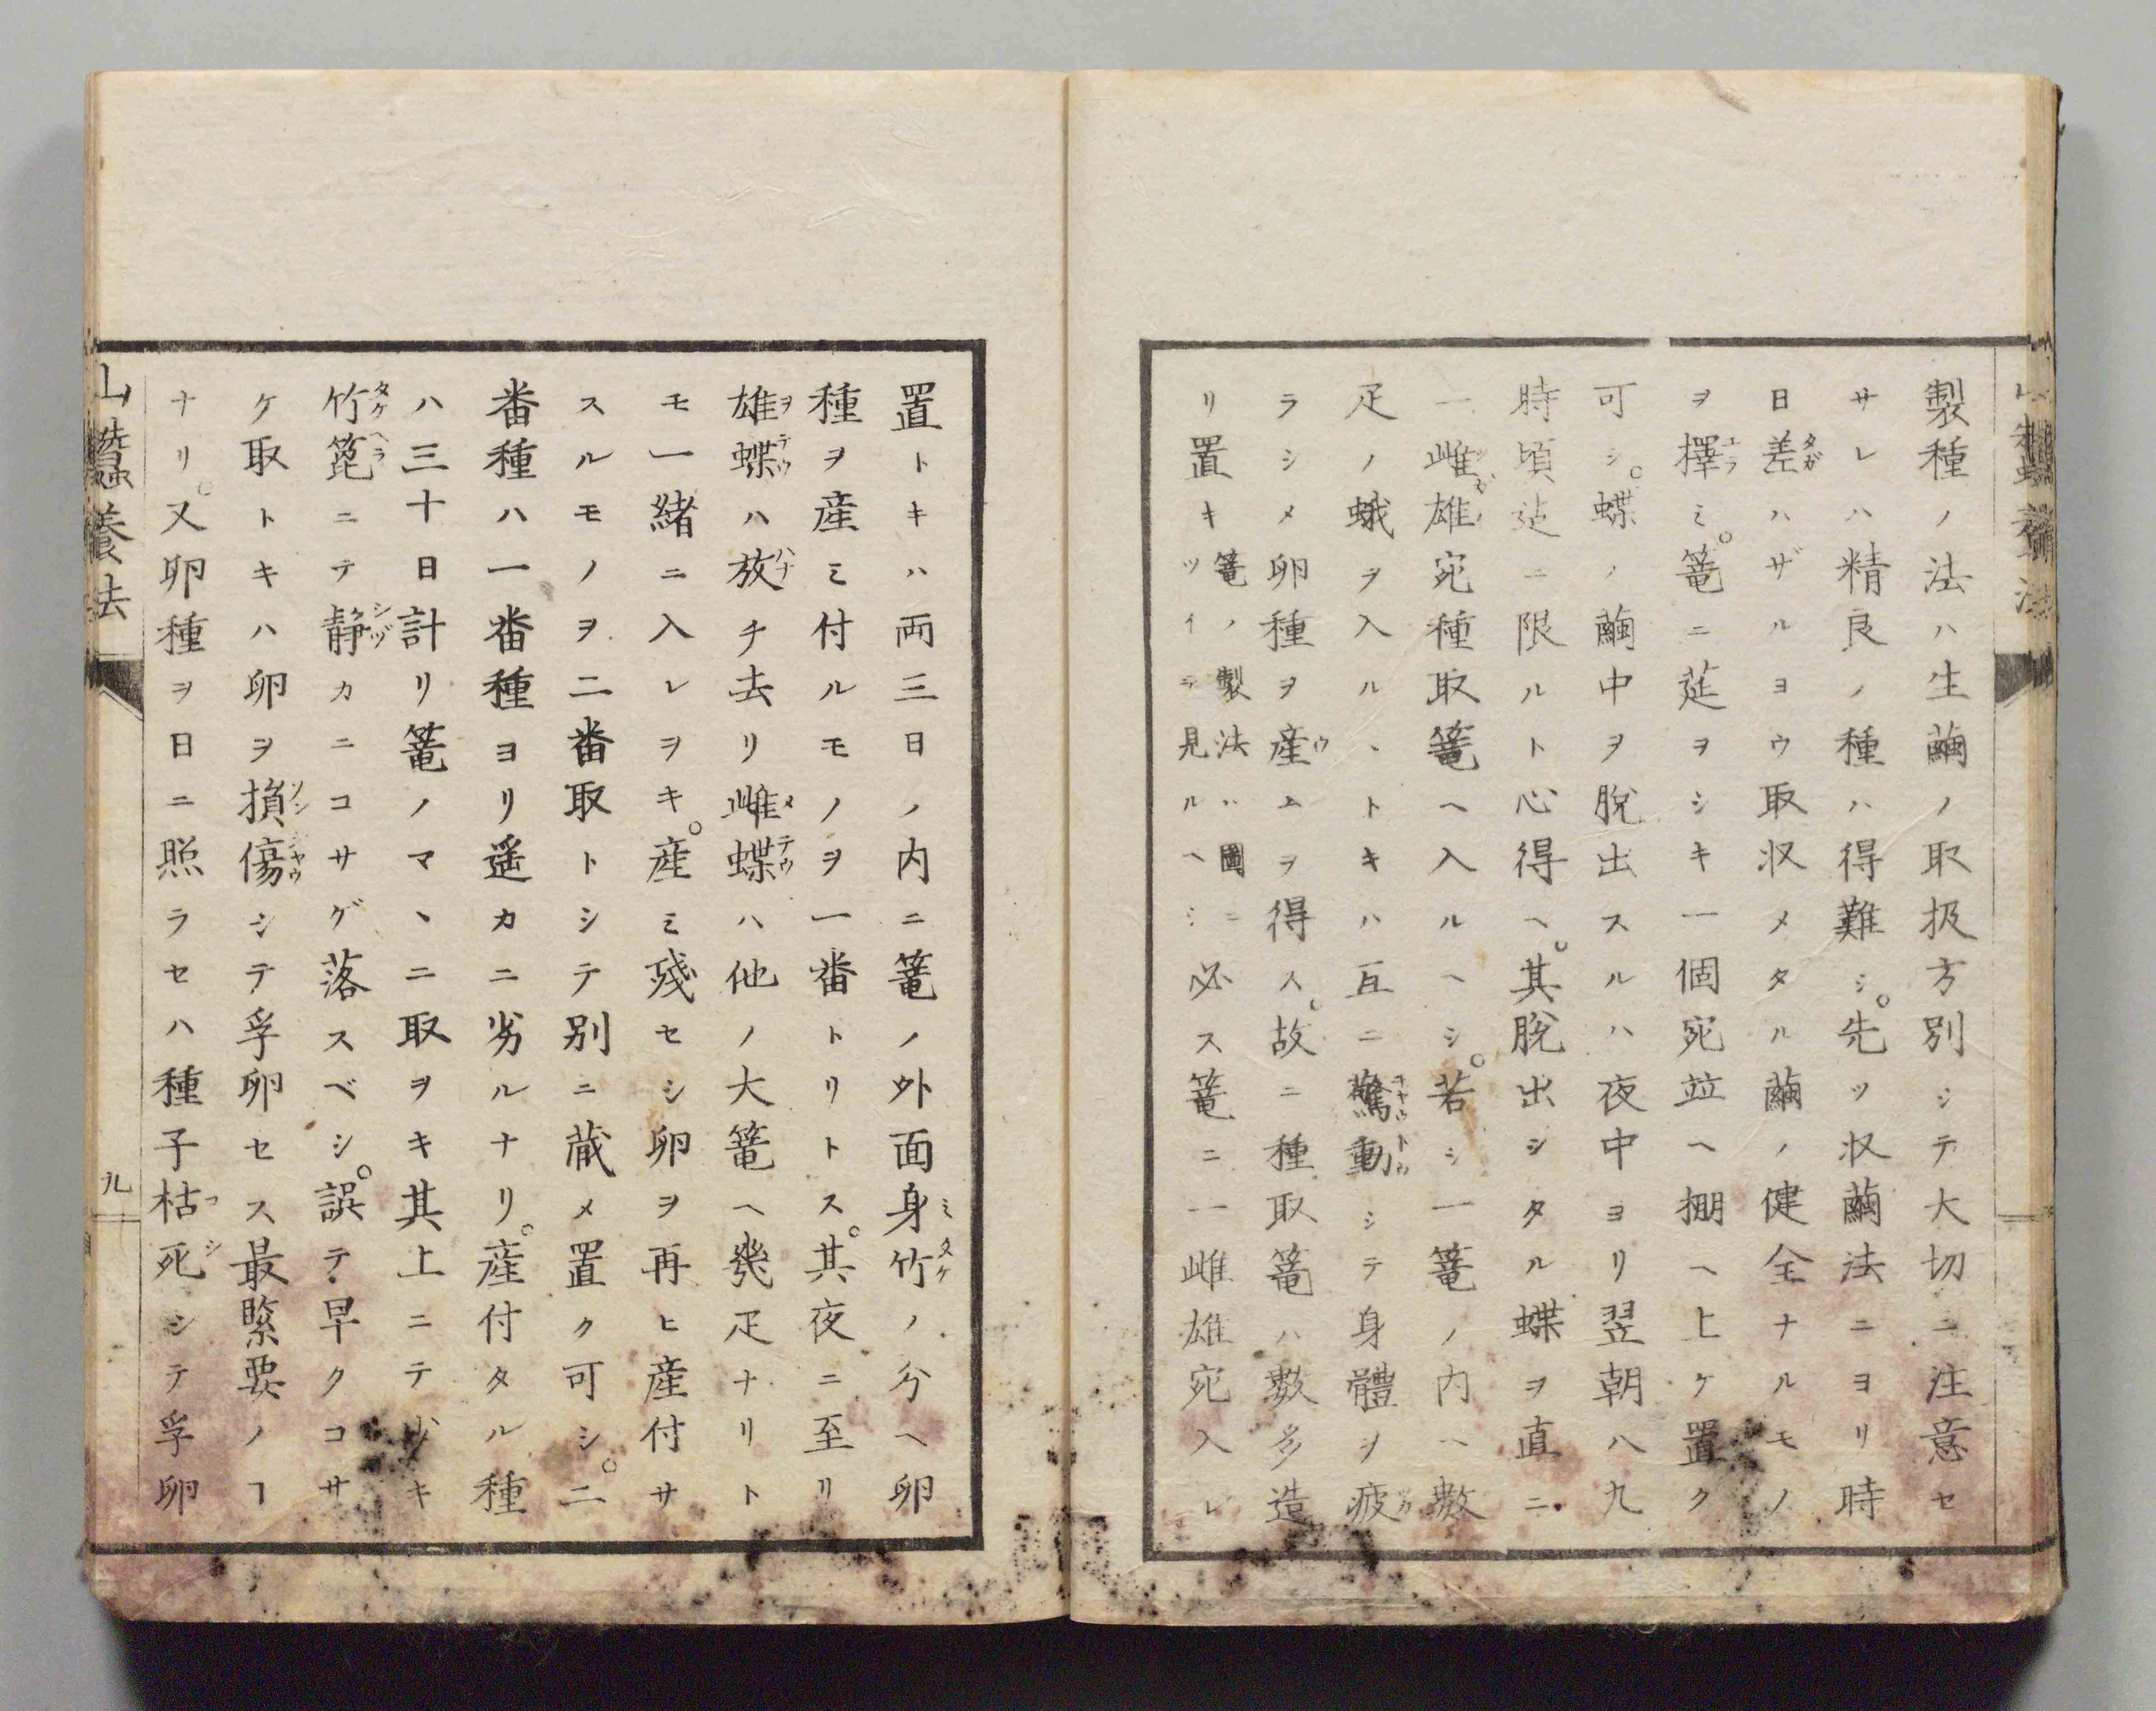 製種ノ法ハ生繭ノ取扱方別シテ大切ニ注意セ
サレハ精良ノ種ハ得難シ。先ツ収繭法ニヨリ時
日差ハザルヨウ取収メタル繭ノ健全ナルモノ
ヲ擇ミ。篭ニ莚ヲシキ一個宛竝ヘ棚ヘ上ケ置ク
可シ。蝶ノ繭中ヲ脱出スルハ夜中ヨリ翌朝八九
時頃迠ニ限ルト心得ヘ。其脱出シタル蝶ヲ直ニ
一雌雄宛種取篭ヘ入ルヘシ。若シ一篭ノ内ヘ数
疋ノ蛾ヲ入ルヽトキハ互ニ驚動シテ身體ヲ疲
ラシメ卵種ヲ産ムヲ得ス。故ニ種取篭ハ数多造
リ置キ篭ノ製法ハ圖ニツイテ見ルヘシ必ス篭ニ一雌雄宛入レ
置トキハ両三日ノ内ニ篭ノ外面身竹ノ分ヘ卵
種ヲ産ミ付ルモノヲ一番トリトス。其夜ニ至リ
雄蝶ハ放チ去リ雌蝶ハ他ノ大篭ヘ幾疋ナリト
モ一緒ニ入レヲキ。産ミ残セシ卵ヲ再ヒ産付サ
スルモノヲ二番取トシテ別ニ蔵メ置ク可シ。二
番種ハ一番種ヨリ遥カニ劣ルナリ。産付タル種
ハ三十日計リ篭ノマヽニ取ヲキ其上ニテ少キ
竹篦ニテ静カニコサゲ落スベシ。誤テ早クコサ
ケ取トキハ卵ヲ損傷シテ孚卵セス最緊要ノヿ
ナリ。又卵種ヲ日ニ照ラセハ種子枯死シテ孚卵
山蠶養法
九